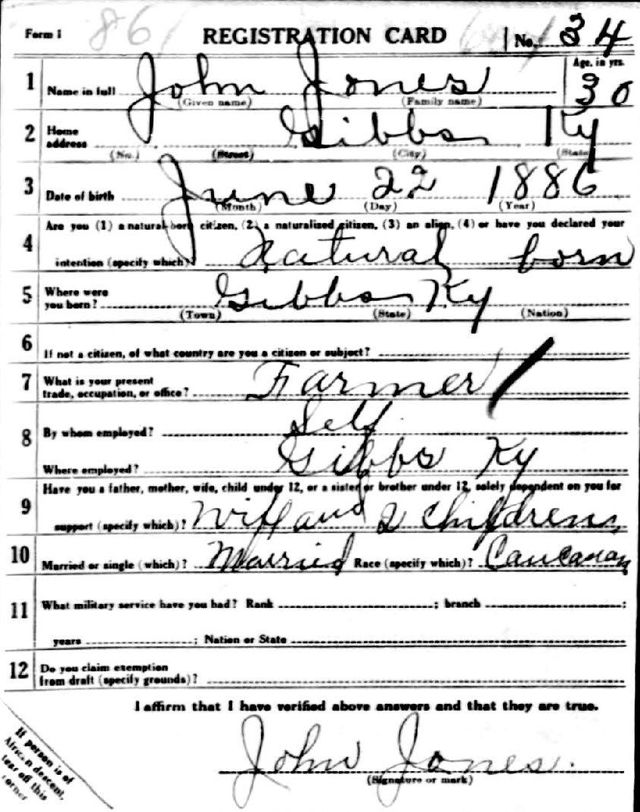 Form 1 861 REGISTRATION CARD No. 34
1 Name in full John Jones Age, in yrs. 30
(Given name) (Family name)
2 Home address Gibbs Ky
(No.) (Street) (City) (State)
3 Date of birth June 22 1886
(Month) (Day) (Year)
4 Are you (1) a natural-born citizen, (2) a naturalized citizen, (3) an alien, (4) or have you declared your
intention (specify which)? Natural born
5 Where were you born? Gibbs Ky
(Town) (State) (Nation)
6 If not a citizen, of what country are you a citizen or subject?
7 What is your present trade, occupation, or office? Farmer
8 By whom employed? Self
Where employed? Gibbs Ky
9 Have you a father, mother, wife, child under 12, or a sister or brother under 12, solely dependent on you for
support (specify which)? Wiff and 2 Childrens
10 Married or single (which)? Married Race (specify which)? Caucasan
11 What military service have you had? Rank ; branch ;
years ; Nation or State
12 Do you claim exemption from draft (specify grounds)?
I affirm that I have verified above answers and that they are true.
John Jones.
(Signature or mark)
If person is of
African descent,
tear off this
corner